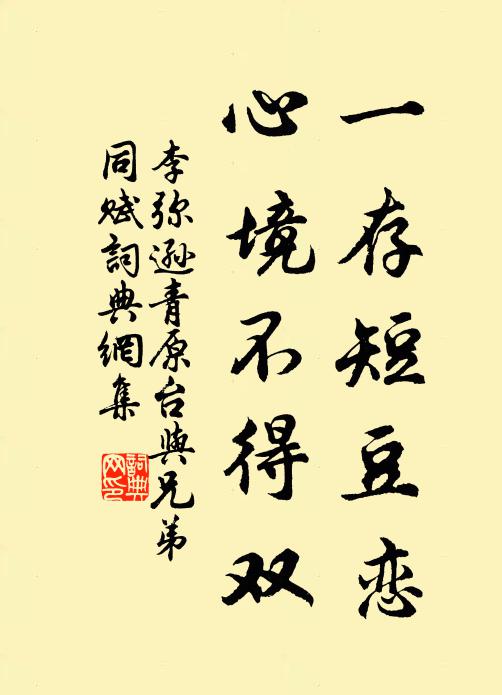 一存短豆恋
心境不得双
李弥逊青原台與兄弟
同赋詞典網集
詞典
网印